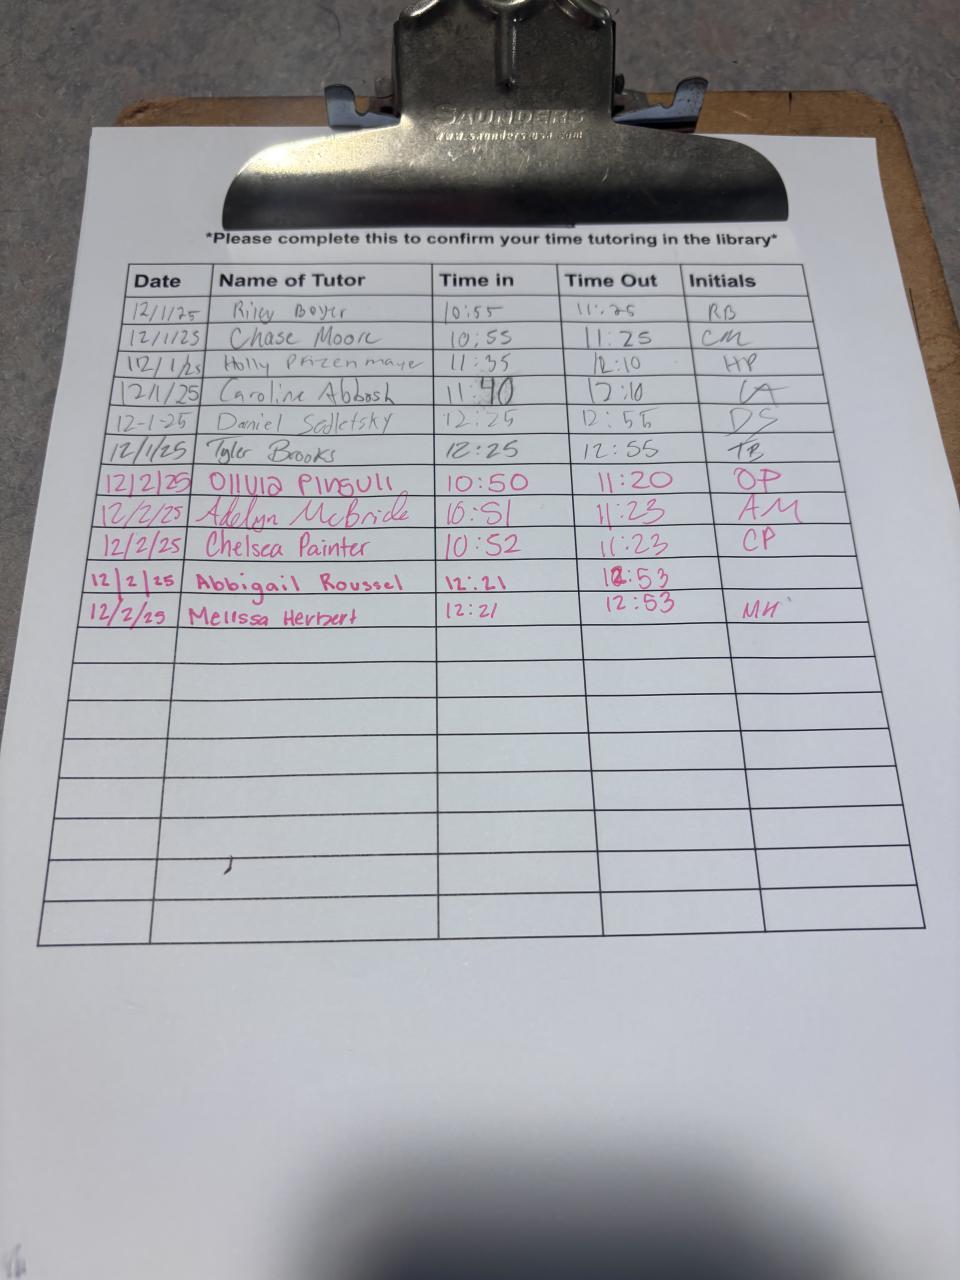 SAUNDERS
www.saunders-usa.com
*Please complete this to confirm your time tutoring in the library*
Date Name of Tutor Time in Time Out Initials
12/1/25 Riley Boyer 10:55 11:25 RB
12/1/25 Chase Moore 10:55 11:25 CM
12/1/25 Holly Pfizenmayer 11:35 12:10 HP
12/1/25 Caroline Abbosh 11:40 12:10 CA
12-1-25 Daniel Sedletsky 12:25 12:55 DS
12/1/25 Tyler Brooks 12:25 12:55 TB
12/2/25 Olivia Pinguli 10:50 11:20 OP
12/2/25 Adelyn McBride 10:51 11:23 AM
12/2/25 Chelsea Painter 10:52 11:23 CP
12/2/25 Abbigail Roussel 12:21 12:53
12/2/25 Melissa Herbert 12:21 12:53 MH